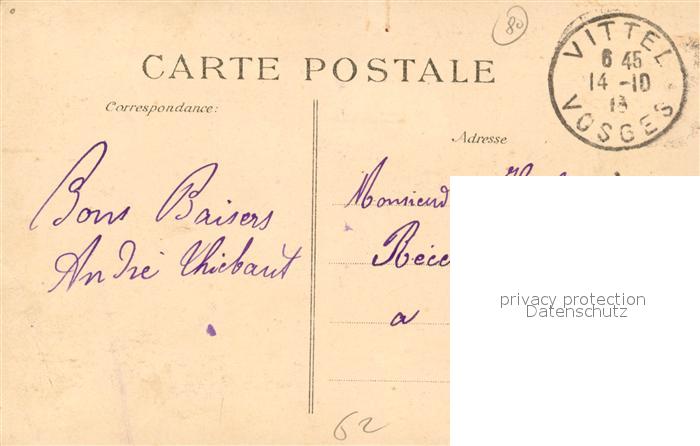 80
VITTEL
6 45
14 -10
13
VOSGES
CARTE POSTALE
Correspondance:
Adresse
Bons Baisers
André Thiebaut
Monsieur
à
privacy protection
Datenschutz
62